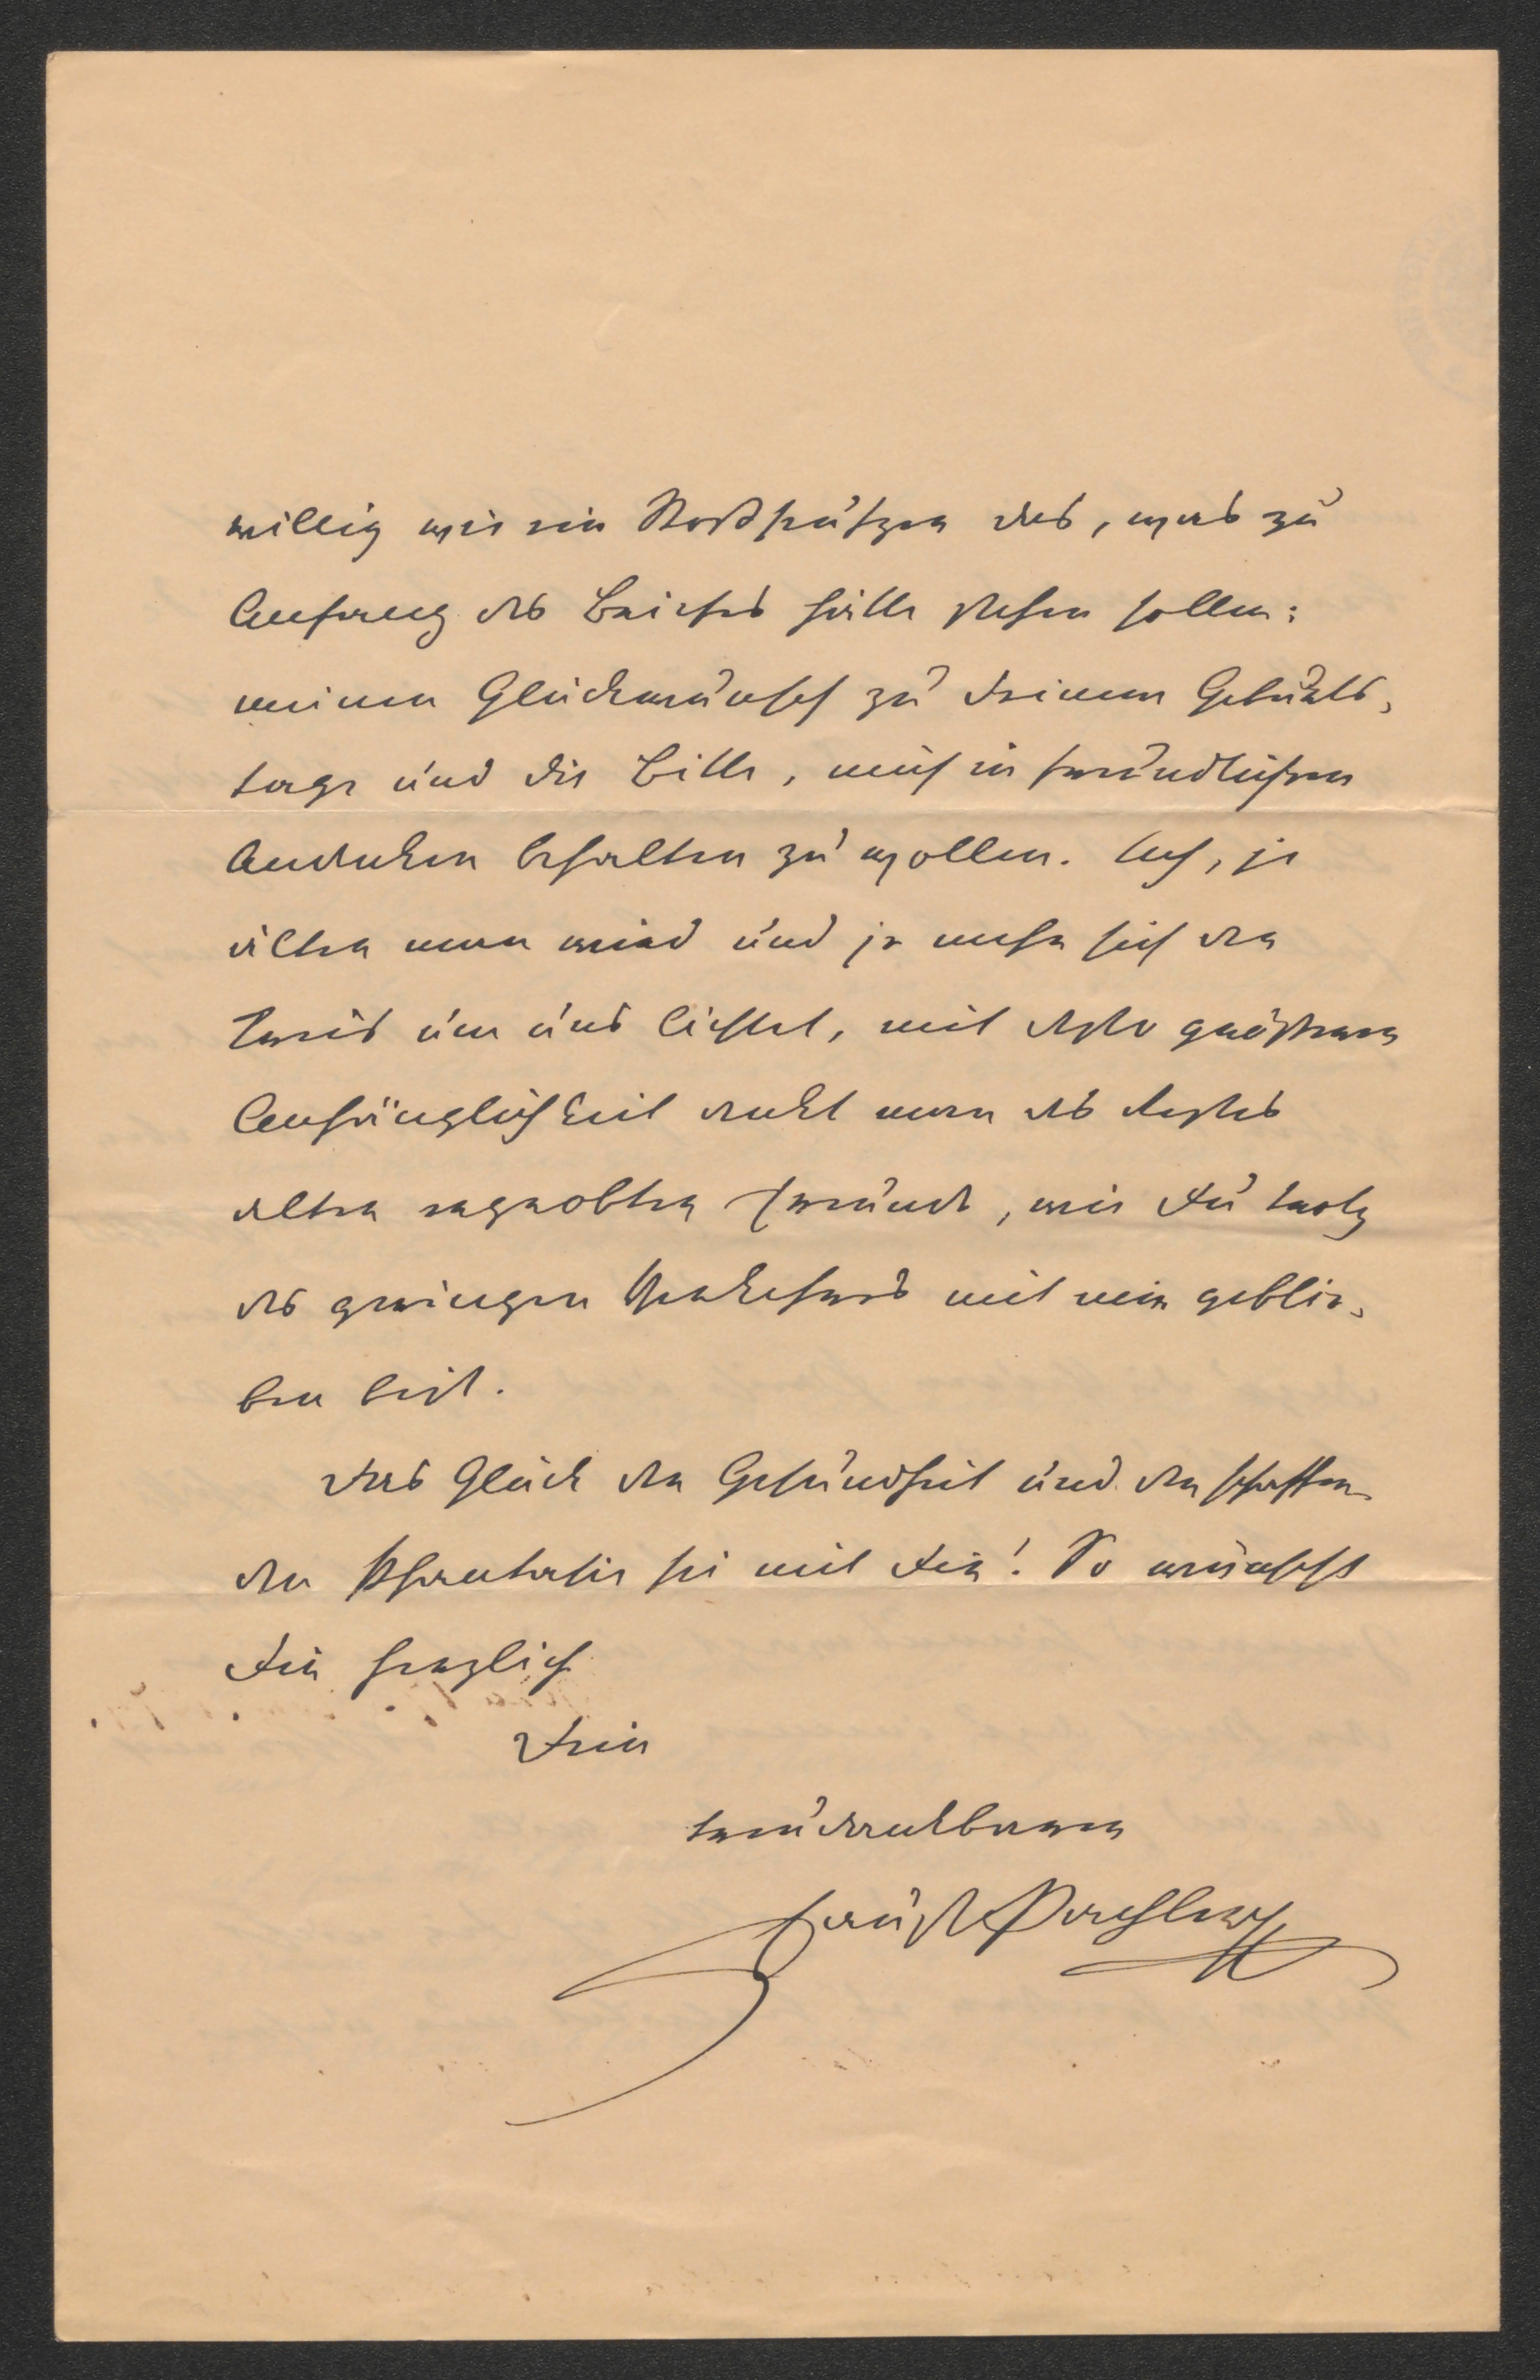 willig wie ein Stoßseufzer das, was zu
Anfang des Briefes hätte stehen sollen:
meinen Glückwunsch zu Deinem Geburts-
tage und die Bitte, mich in freundlichem
Andenken behalten zu wollen. Ach, je
älter man wird und je mehr sich der
Kreis um uns lichtet, mit desto größerer
Anhänglichkeit denkt man des Restes
alter erprobter Freunde, wie Du trotz
des geringen Verkehres mit mir geblie-
ben bist.
Das Glück der Gesundheit und der schaffen-
den Phantasie sei mit Dir! So wünscht
Dir herzlich
Dein
treudankbarer
Faust Pachler